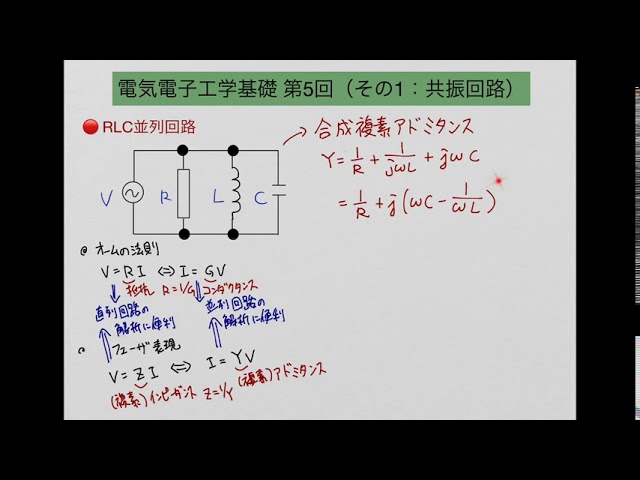 電気電子工学基礎 第5回（その1：共振回路）
RLC並列回路
V R L C
合成複素アドミタンス
Y = 1/R + 1/jωL + jωC
= 1/R + j(ωC - 1/ωL)
オームの法則
V = R I ⇔ I = G V
抵抗 R = 1/G コンダクタンス
直列回路の
解析に便利
並列回路の
解析に便利
フェーザ表現
V = Z I ⇔ I = Y V
(複素)インピーダンス Z = 1/Y (複素)アドミタンス